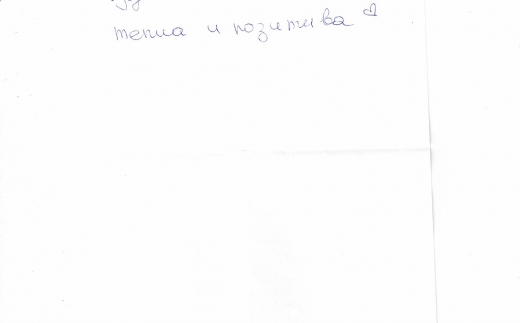 тепла и позитива ♡